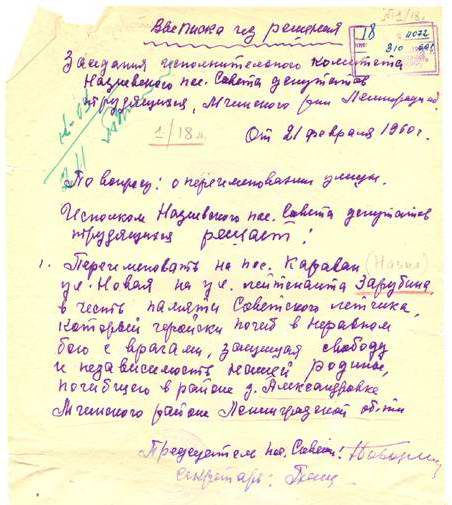 Выписка из решения
Заседания исполнительного комитета
Назиевского пос. Совета депутатов
трудящихся, Мгинского р-на Ленинградской
1/18 м.
От 21 февраля 1960 г.
По вопросу: о переименовании улицы.
Исполком Назиевского пос. Совета депутатов
трудящихся решает:
1. Переименовать на пос. Караван (Назия)
ул. Новая на ул. лейтенанта Зарубина,
в честь памяти Советского летчика,
который геройски погиб в неравном
бою с врагами, защищая свободу
и независимость нашей родины,
погибшего в районе д. Александровка
Мгинского района Ленинградской об-ти
Председатель пос. Совета:
секретарь: